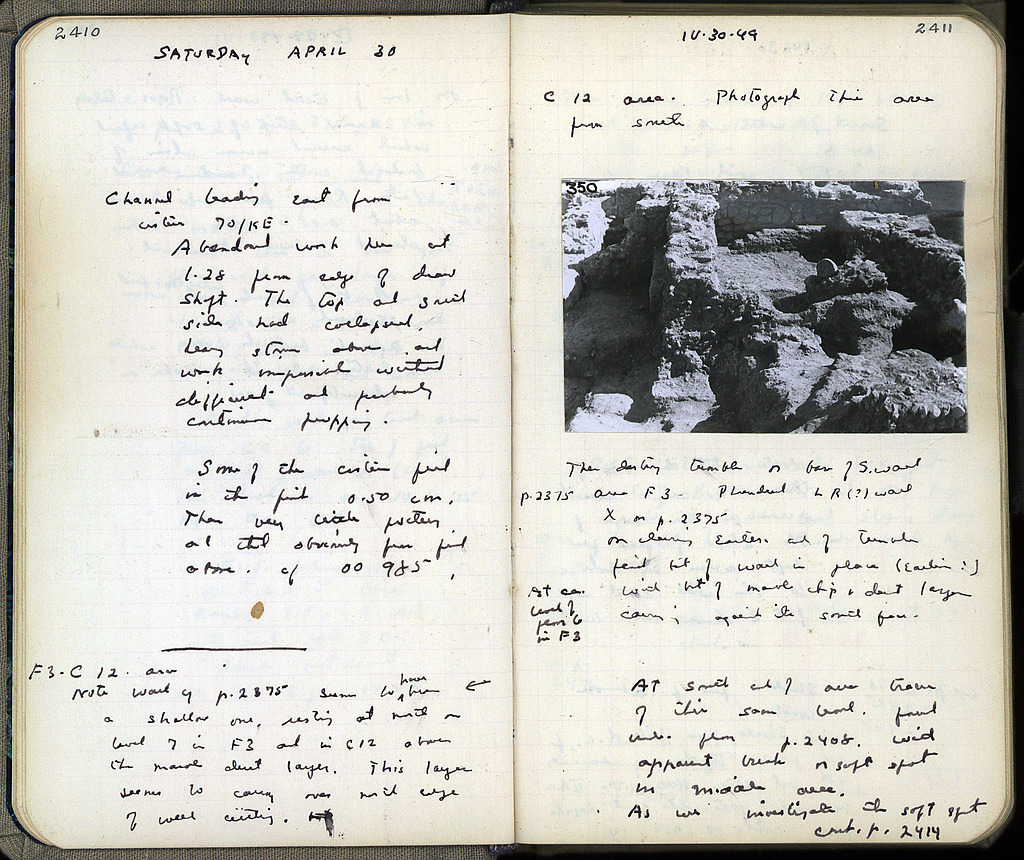 2410
SATURDAY APRIL 30
Channel leading east from
cistern 70/KE.
Abandoned work here at
1.28 from edge of draw
shaft. The top and south
side had collapsed,
heavy stones above and
work impossible without
difficult and probably
continuous propping.
Some of the cistern fill
in the first 0.50 cm,
Then very little pottery,
and that obviously from fill
above. cf 00 985,
F3-C 12 area
Note wall of p. 2375 seems to have been
a shallow one, resting at north on
level 7 in F3 and in C12 above
the marble dust layer. This layer
seems to carry over north edge
of well cutting.
IV·30·49
2411
C 12 area. Photograph this area
from south
350
Then destroy tumble on base of S. wall
p. 2375 area F3. LR(?) wall
X on p. 2375
On clearing Eastern end of tumble
find bit of wall in place (Earlier?)
At ca.
level of
floor 6
in F3
with bit of marble chip & dust layer
coming against its south face.
At south end of area trace
of this same level. found
under floor p. 2408. with
apparent break or soft spot
in middle area.
As we investigate the soft spot
cont. p. 2414